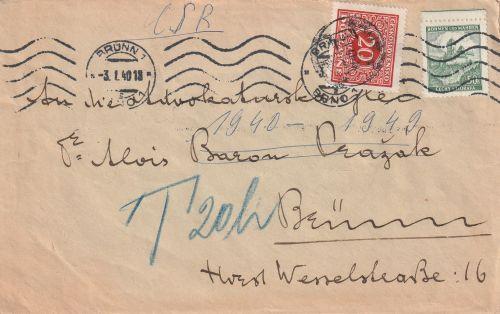 ČSR
BRÜNN 1
-3. I. 40 18
ČESKOSLOVENSKO
20
BÖHMEN UND MÄHREN
ČECHY A MORAVA
BRNO
An die Advokaturskanzlei
1940 - 1949
Dr. Alois Baron Pražák
T 20h
Brünn
Horst Wesselstraße: 16